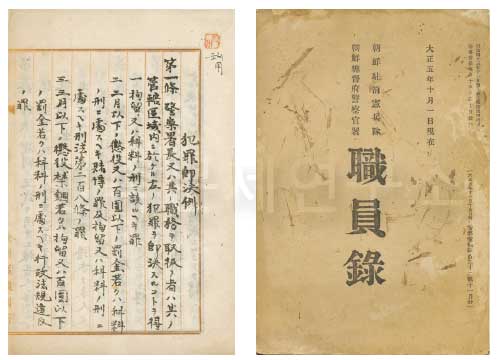 犯罪即決例
第一條 警察署長又ハ其ノ職務ヲ取扱フ者ハ其ノ
管轄區域內ニ於ケル左ノ犯罪ヲ即決スルコトヲ得
一 拘留又ハ科料ノ刑ニ該ルヘキ罪
二 三月以下ノ懲役又ハ百圓以下ノ罰金若クハ科料
ノ刑ニ處スヘキ賭博ノ罪及拘留又ハ科料ノ刑ニ
處スヘキ刑法第二百八條ノ罪
三 三月以下ノ懲役禁錮若クハ拘留又ハ百圓以下
ノ罰金若クハ科料ノ刑ニ處スヘキ行政法規違反
ノ罪
大正五年十月一日現在
朝鮮駐箚憲兵隊
朝鮮總督府警察官署
職員錄